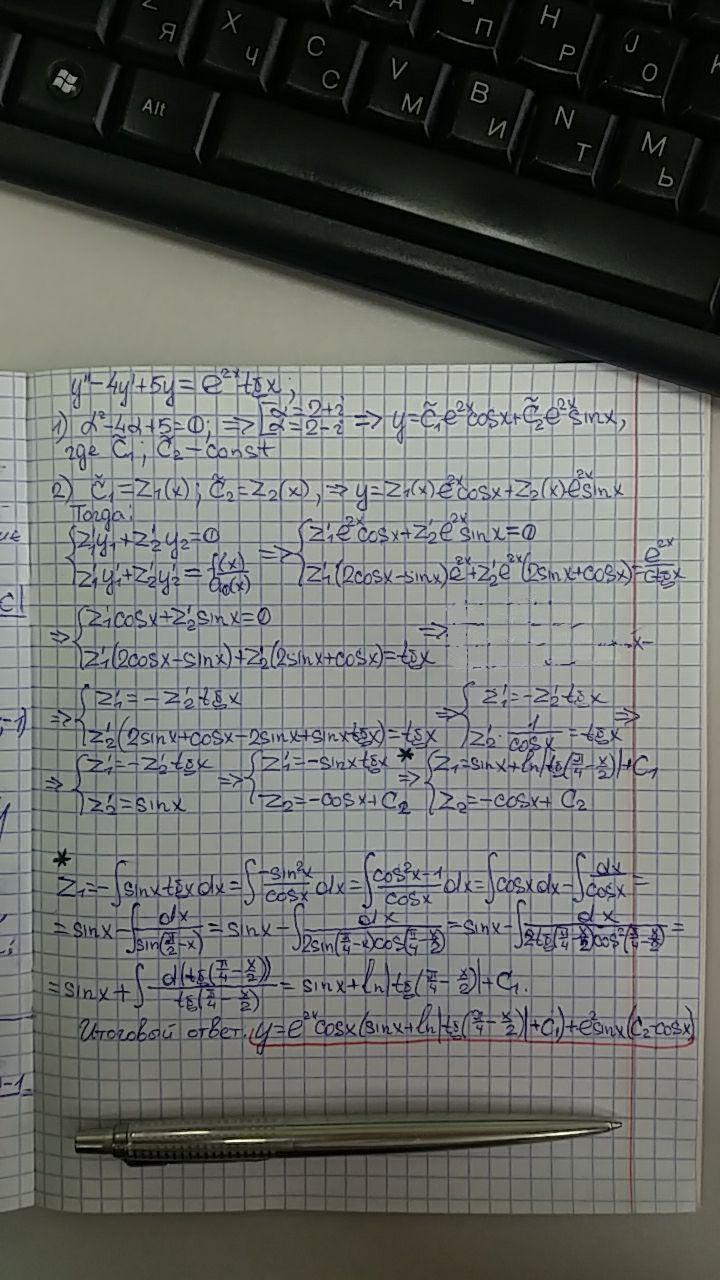 Z Я
X Ч
C С
V М
B И
N Т
M Ь
А
П
Н Р
J О
К
Alt
y''-4y'+5y=e^{2x}tgx;
1) α²-4α+5=0; => [α=2+i α=2-i => y=C̃₁e^{2x}cosx+C̃₂e^{2x}sinx,
где C̃₁; C̃₂-const
2) C̃₁=Z₁(x); C̃₂=Z₂(x), => y=Z₁(x)e^{2x}cosx+Z₂(x)e^{2x}sinx
Тогда:
{Z₁'y₁+Z₂'y₂=0 => {Z₁'e^{2x}cosx+Z₂'e^{2x}sinx=0
Z₁'y₁'+Z₂'y₂'=f(x)/a₀(x) Z₁'(2cosx-sinx)e^{2x}+Z₂'e^{2x}(2sinx+cosx)=e^{2x}/ctgx
=> {Z₁'cosx+Z₂'sinx=0 =>
Z₁'(2cosx-sinx)+Z₂'(2sinx+cosx)=tgx
=> {Z₁'=-Z₂'tgx => {Z₁'=-Z₂'tgx =>
Z₂'(2sinx+cosx-2sinx+sinxtgx)=tgx Z₂'·1/cosx=tgx
=> {Z₁'=-Z₂'tgx => {Z₁'=-sinxtgx * => {Z₁=sinx+ln|tg(π/4-x/2)|+C₁
Z₂'=sinx Z₂=-cosx+C₂ Z₂=-cosx+C₂
*
Z₁=-∫sinxtgxdx=∫-sin²x/cosx dx=∫(cos²x-1)/cosx dx=∫cosxdx-∫dx/cosx=
=sinx-∫dx/sin(π/2-x)=sinx-∫dx/2sin(π/4-x)cos(π/4-x/2)=sinx-∫dx/2tg(π/4-x/2)cos²(π/4-x/2)=
=sinx+∫d(tg(π/4-x/2))/tg(π/4-x/2)=sinx+ln|tg(π/4-x/2)|+C₁.
Итоговый ответ: y=e^{2x}cosx(sinx+ln|tg(π/4-x/2)|+C₁)+e^{2}sinx(C₂-cosx)